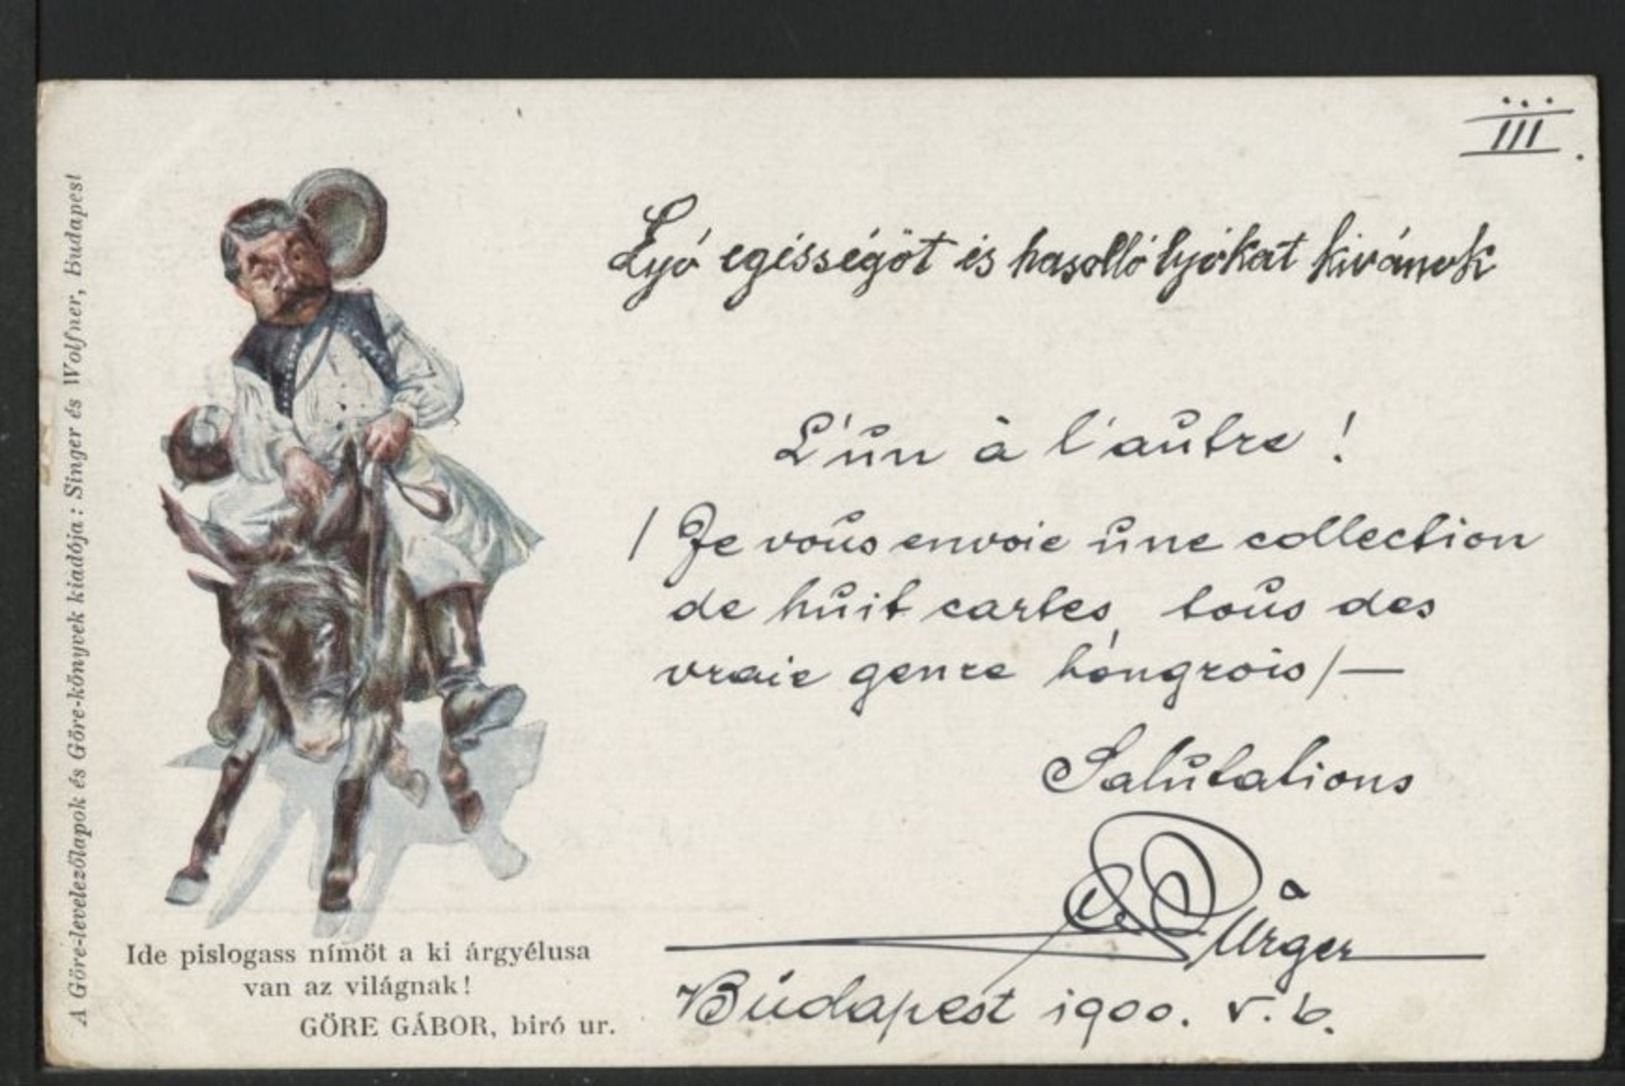 III.
Lyó egísségöt ís hasolló lyókat kivánok
L'un à l'autre !
/ Je vous envoie une collection
de huit cartes, tous des
vraie genre hongrois /—
Salutations
Pürger
Budapest 1900. V. 6.
A Göre-levelezőlapok és Göre-könyvek kiadója: Singer és Wolfner, Budapest
Ide pislogass nímöt a ki árgyélusa
van az világnak!
GÖRE GÁBOR, biró ur.